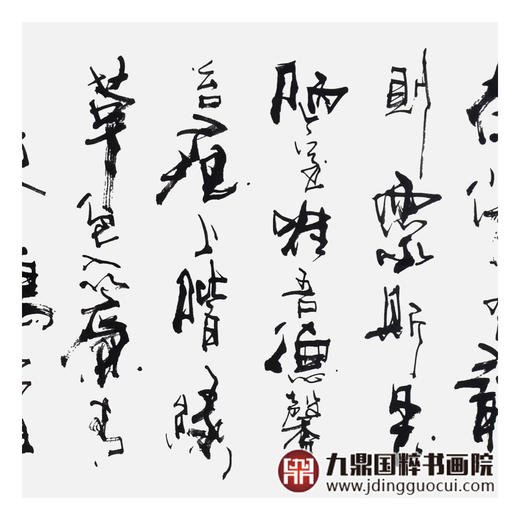 則靈斯是
陋室惟吾德馨
苔痕上階綠
草色入簾青
九鼎国粹书画院
www.jdingguocui.com